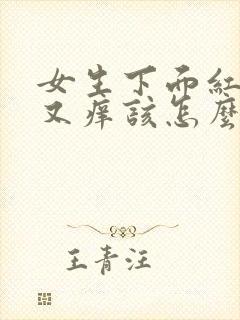 女生下面紅
又痒該怎麼
王青汪